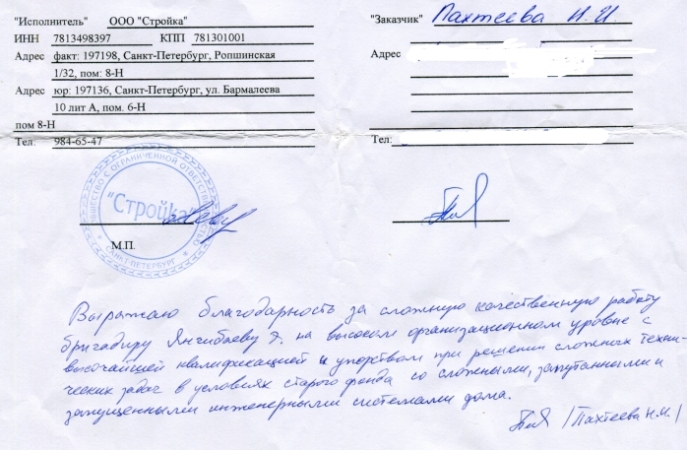 "Исполнитель" ООО "Стройка"
ИНН 7813498397 КПП 781301001
Адрес факт: 197198, Санкт-Петербург, Ропшинская
1/32, пом: 8-Н
Адрес юр: 197136, Санкт-Петербург, ул. Бармалеева
10 лит А, пом. 6-Н
пом 8-Н
Тел: 984-65-47
"Стройка"
САНКТ-ПЕТЕРБУРГ
М.П.
"Заказчик" Пахтеева Н.И
Адрес
Тел:
Выражаю благодарность за сложную качественную работу
бригадиру Янгибаеву Э. на высоком организационном уровне с
высочайшей квалификацией и упорством при решении сложных техни-
ческих задач в условиях старого фонда со сложными, запутанными и
запущенными инженерными системами дома.
/Пахтеева Н.И./